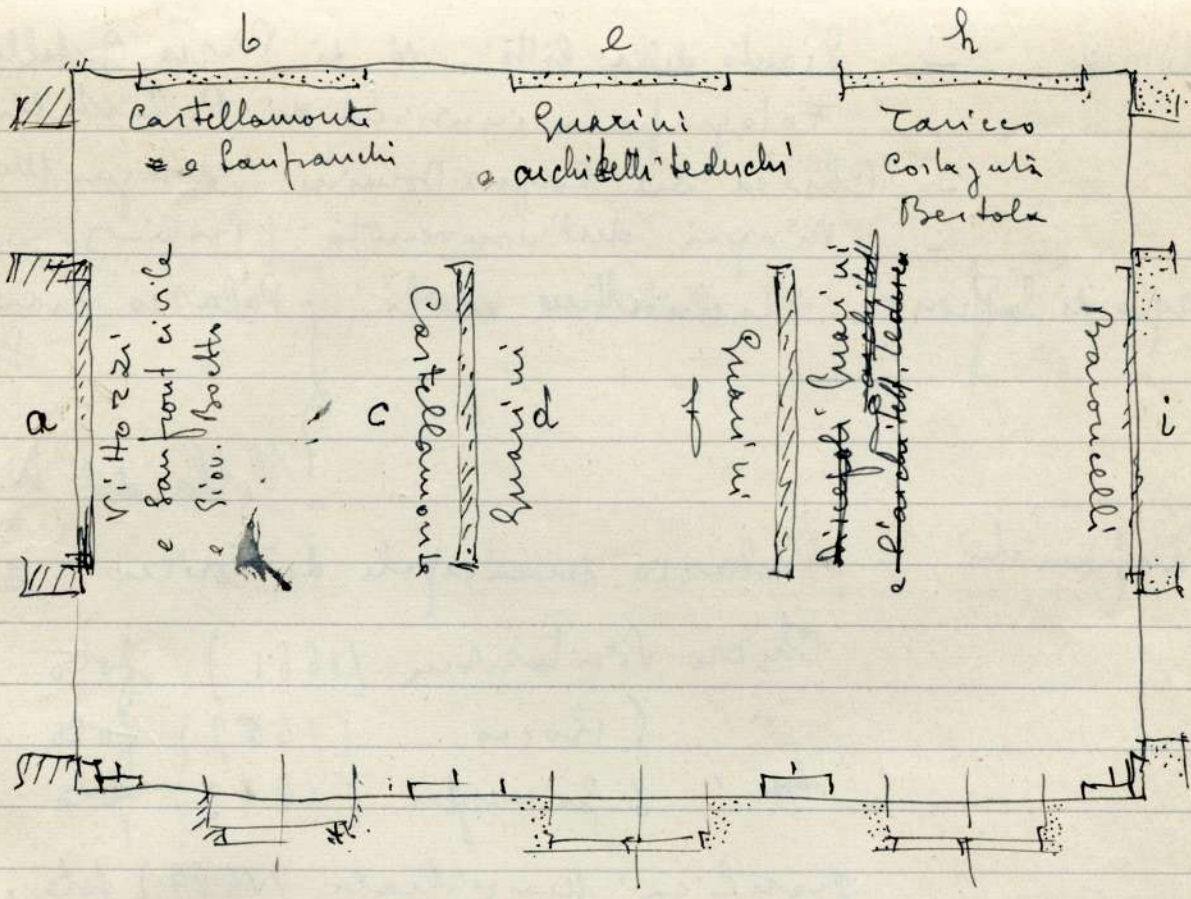 b
e
h
Castellamonte
e Lanfranchi
Guarini
e architetti tedeschi
Taricco
Costaguta
Bertola
a
Vittozzi
e Sanfront civile
e Giov. Boetto
c
Castellamonte
Guarini
d
f
Guarini
Discepoli Guarini
e l'archit. tedesca
Baroncelli
i